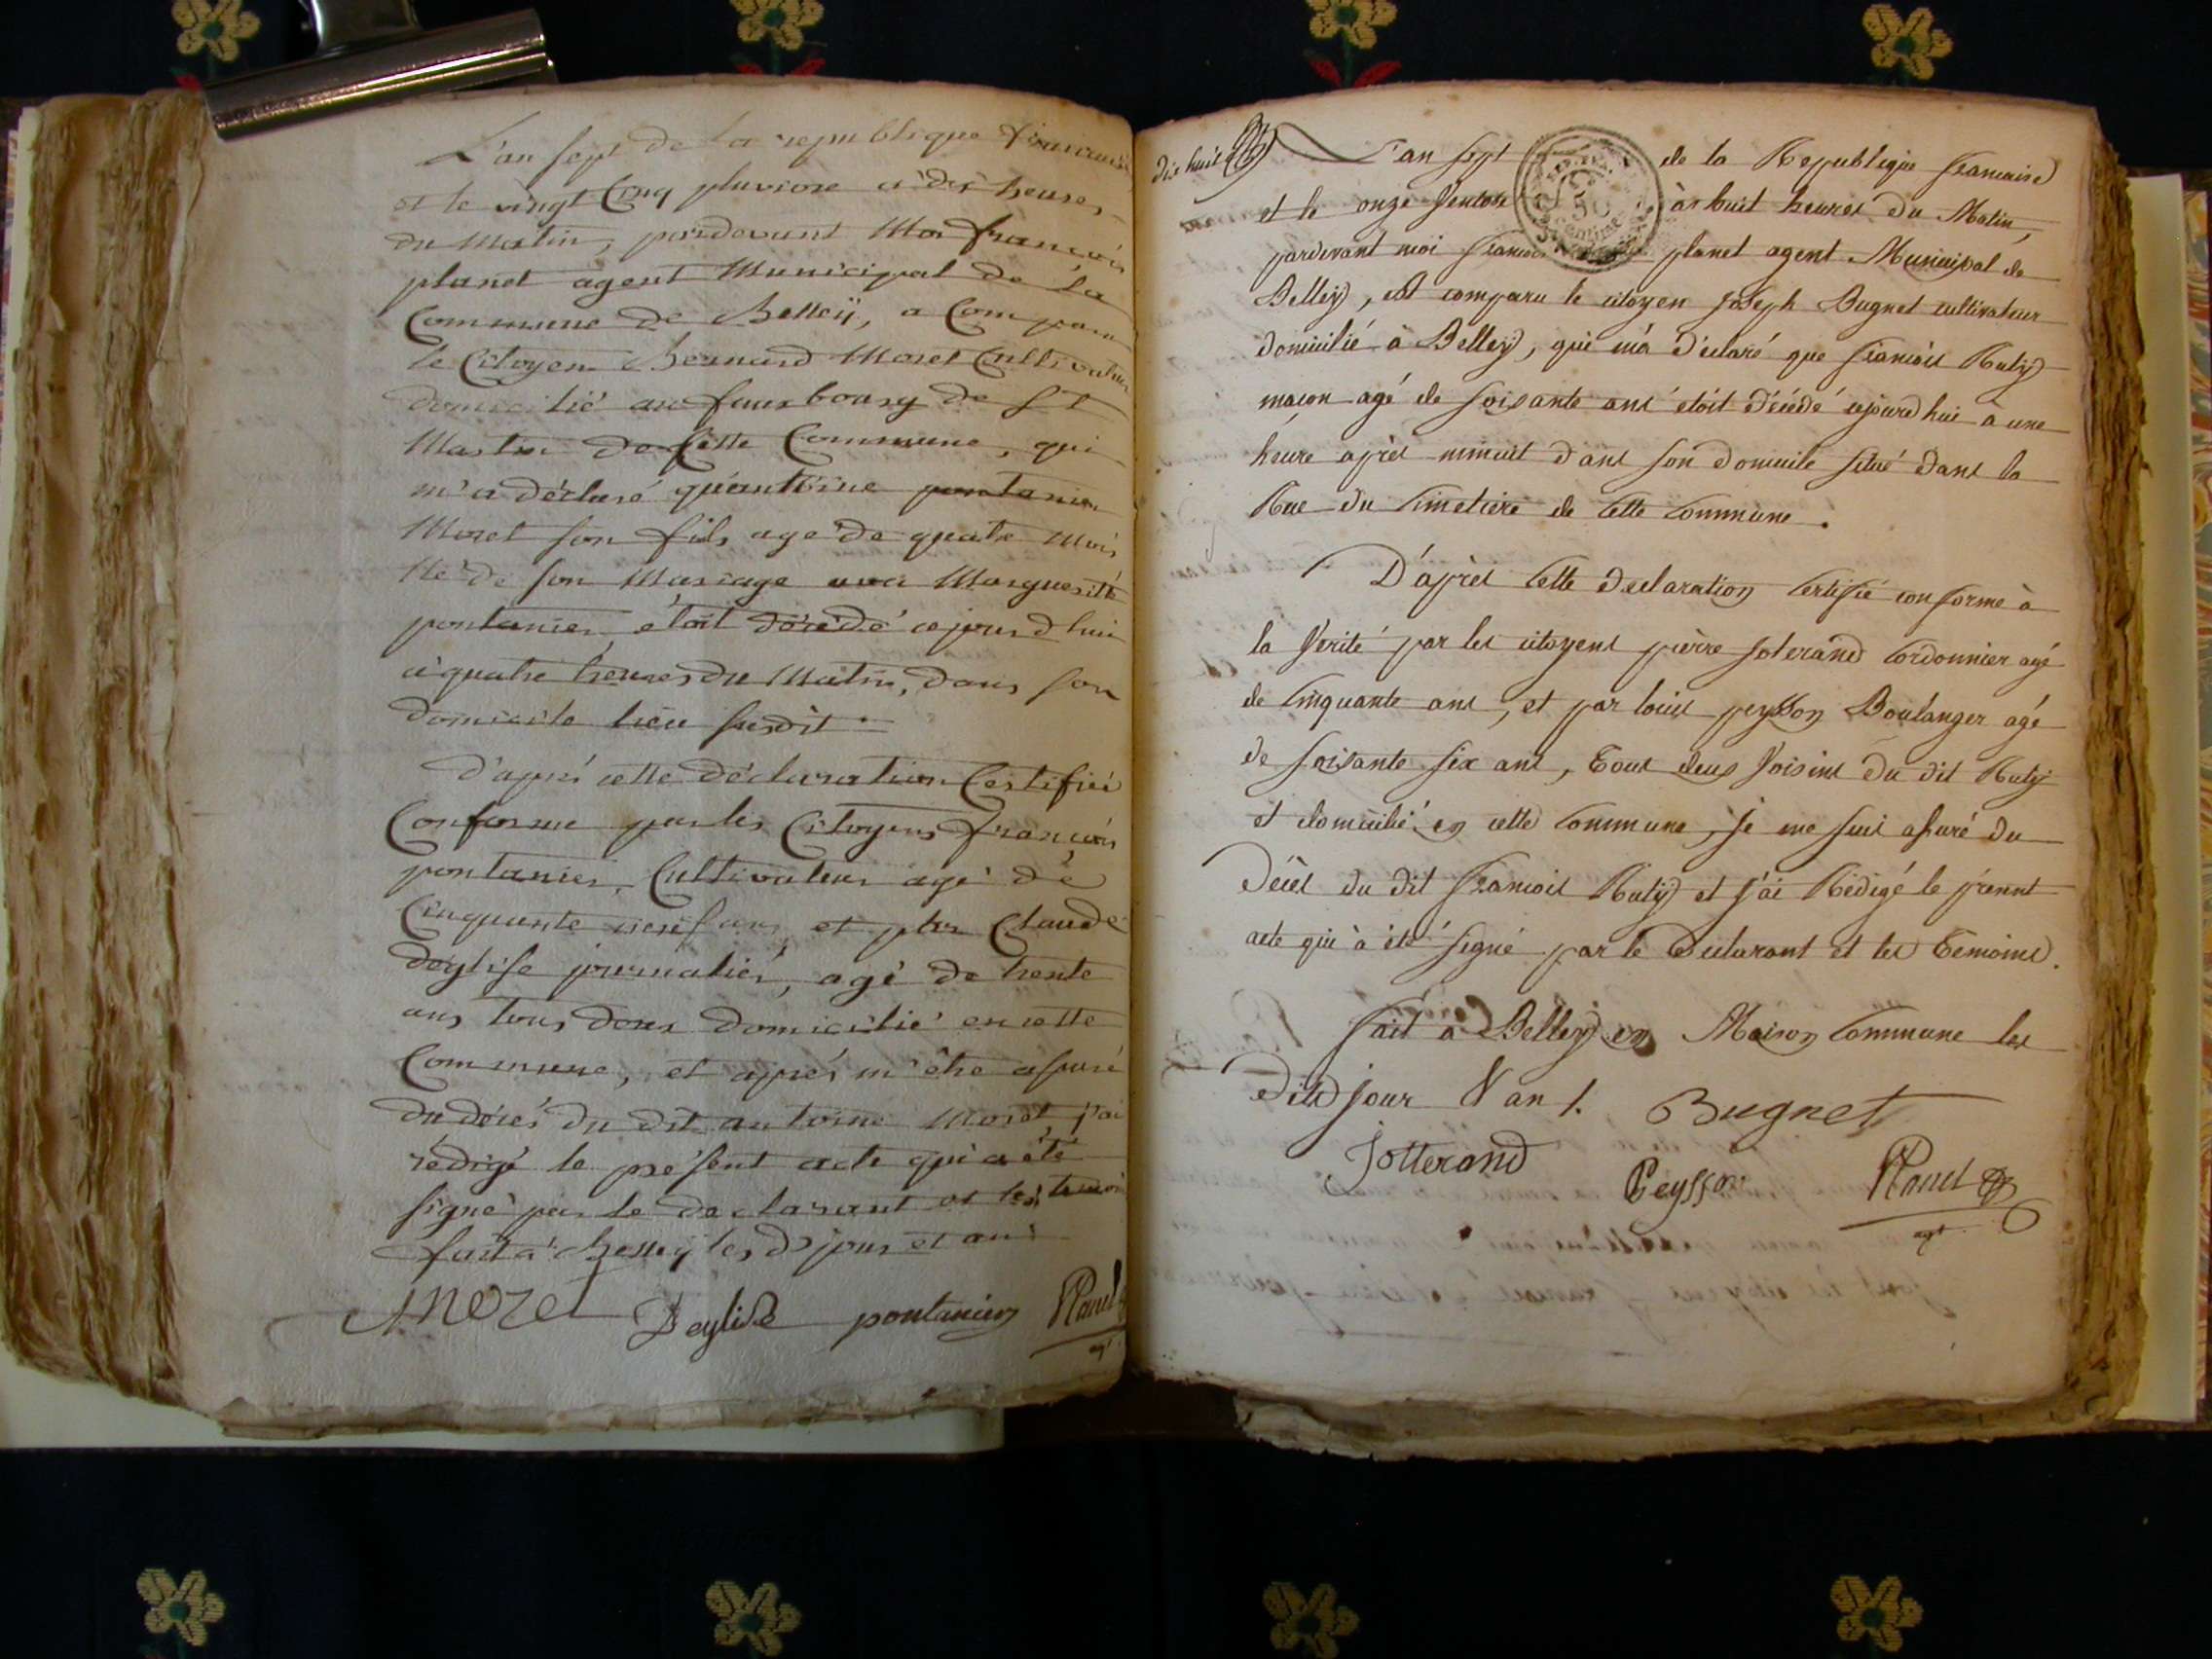 L'an sept de la republique francaise
et le vingt Cinq pluviose à dix heures
du Matin, pardevant Moi françois
planet agent Municipal de la
Commune de Belleÿ, a Comparu
le Citoyen Bernard Moret Cultivateur
domicilié au fauxbourg de St
Martin de Cette Commune, qui
m'a déclaré qu'antoine pontanier
Moret son fils age de quatre Mois
Né de son Mariage avec Marguerite
pontanier étoit décédé cejourd'hui
à quatre heures du Matin, dans son
domicile lieu susdit
d'après cette déclaration Certifiée
Conforme par les Citoyens françois
pontanier, Cultivateur agé de
Cinquante neuf ans et par Claude
deylise journalier, agé de trente
ans tous deux domicilié en cette
Commune, et après m'être assuré
du décès du dit antoine Moret, j'ai
rédigé le présent acte qui a été
signé par le declarant et les temoins
fait à Belleÿ les d. jour et an
Moret Deylise pontanier Planet
agt
dix huit L'an sept de la Republique francaise
et le onze Ventose à huit heures du Matin,
pardevant moi francois planet agent Municipal de
Belleÿ, est comparu le citoyen Joseph Bugnet cultivateur
domicilié à Belleÿ, qui m'a déclaré que francois Rutÿ
maçon agé de soixante ans étoit décédé cejourd'hui à une
heure après minuit dans son domicile situé dans la
Rue du Cimetiere de Cette Commune.
D'après Cette declaration Certifié conforme à
la Verité par les citoyens pierre Joterand Cordonnier agé
de Cinquante ans, et par louis peysson Boulanger agé
de soixante six ans, Tous deux Voisins du dit Rutÿ
et domicilié en cette Commune, je me suis assuré du
décès du dit francois Rutÿ et j'ai Redigé le présent
acte qui à été signé par le Declarant et les Temoins.
fait à Belleÿ en Maison Commune les
dits jour & an /. Bugnet
Jotterand Peysson Planet
agt